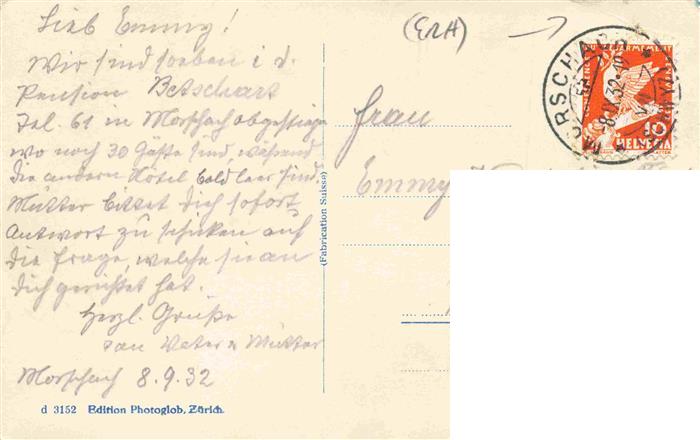 Lieb Emmy!
Wir sind soeben i d.
Pension Betschart
Tel. 61 in Morschach abgestiegen
wo noch 30 Gäste sind, während
die andern Hôtel bald leer sind.
Mutter bittet dich sofort
Antwort zu schicken auf
die Frage, welche sie an
dich gerichtet hat.
Herzl. Grüße
von Vater u Mutter
Morschach 8.9.32
d 3152 Edition Photoglob, Zürich.
(Fabrication Suisse)
(ERA)
Frau
Emmy
8.IX.32
10
HELVETIA